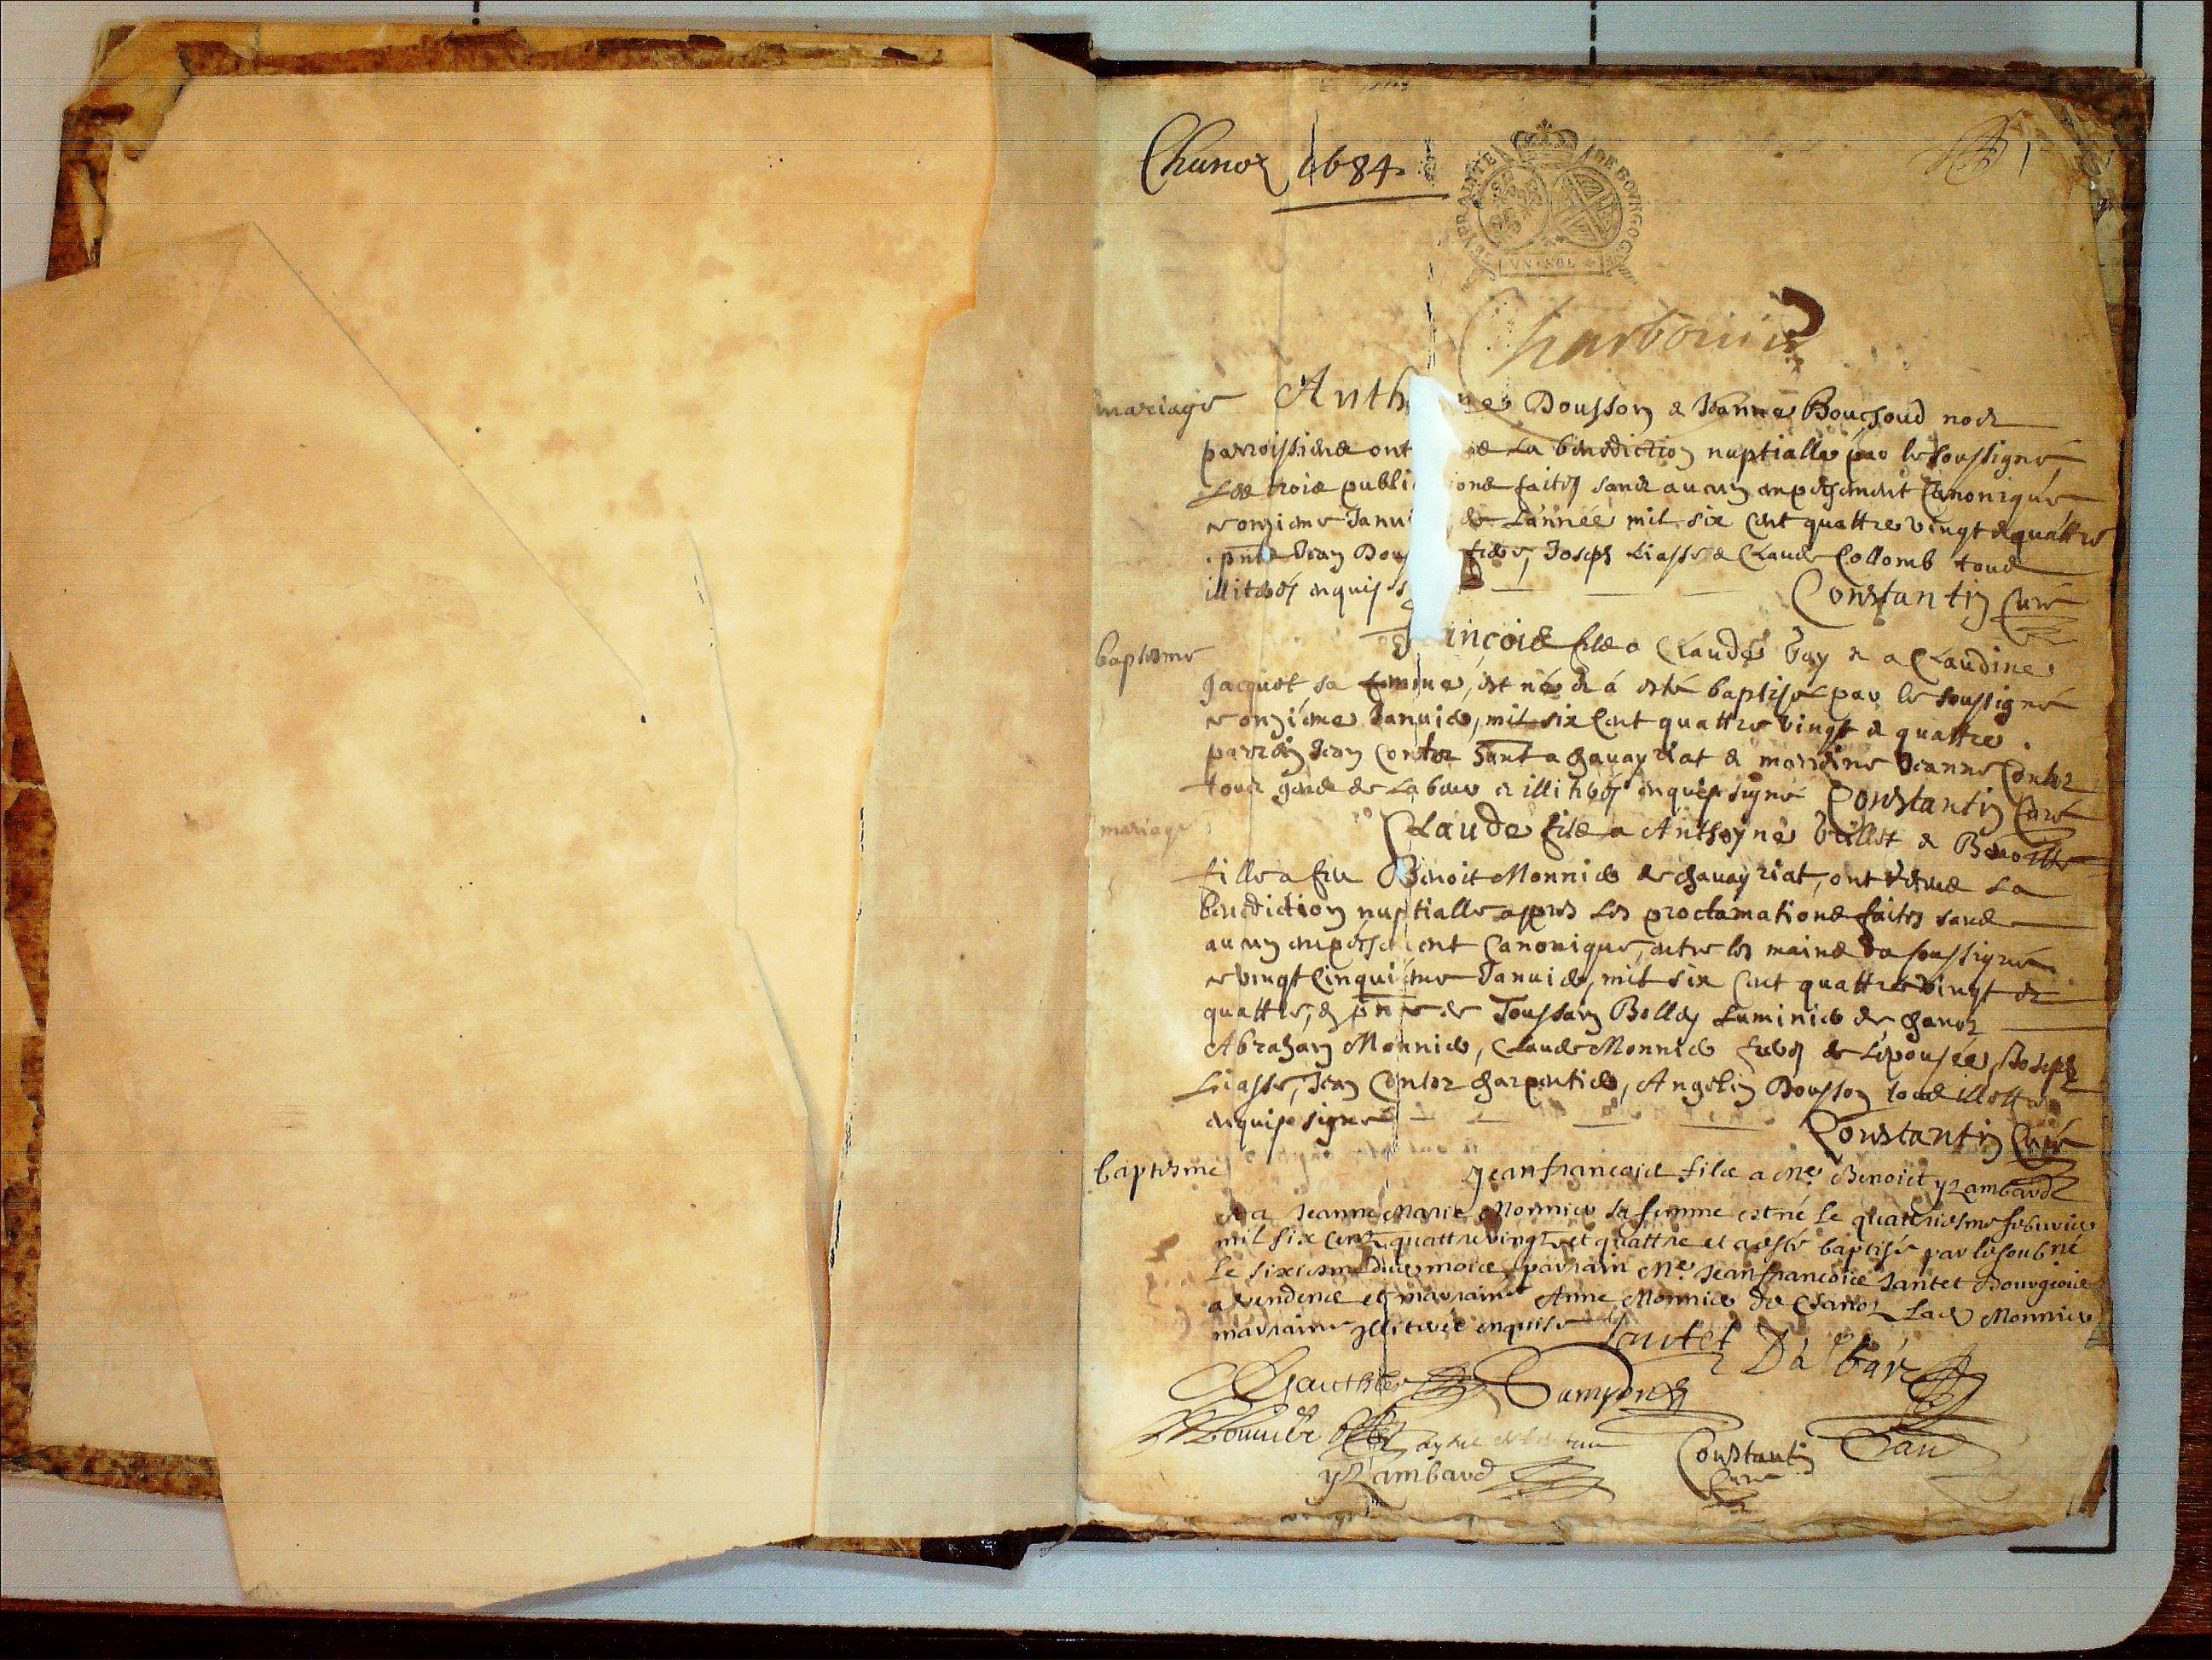 Chanoz 1684
DE BOURGOG
UN SOL
Charbonnier
mariage Anth nes Dousson & Jeanne Bouchoud noz
parroissiens ont la benediction nuptialle par le soussigné
Les trois publi ions faites sans aucun empechement Canonique
ce onzieme Janui de L'année mil six cent quattre vingt & quattre
pnts Jean Dou Joseph Liasse & Claude Collomb tous
illiterés enquis Constantin Curé
baptesme ancois fils a Claude Vay & a Claudine
Jacquet sa femme, est né & á esté baptisé par le soussigné
ce onziéme Januier, mil six Cent quattre vingt & quattre
parrain Jean Contoz a chauayriat & marrine Jeanne Contoz
tous illiterés enquis signé Constantin Curé
mariage Claude fils a Anthoyne Vuillot & Benoitte
fille a feu Benoit Monnier de chauayriat, ont la
benediction nuptialle appres les proclamations faites sans
aucun empechement Canonique, entre les mains du soussigné
ce vingt Cinquiéme Januier, mil six Cent quattre vingt &
quattre, en pnce de Toussain Bolley Luminier de chanoz
Abraham Monnier, Claude Monnier de L'épousée, Joseph
Liasse, Jean Contoz charpentier, Angelin Dousson tous
enquis signer Constantin Curé
baptesme Jean francois filz a Me Benoict yzambard
et a Jeanne Marie Monnier sa femme est né le quatriesme febuvier
mil six cent quattre vingtz et quattre et a esté baptisé par le soubné
le sixiesme dud mois parrain Me Jean francois Jantet Bourgeois
a et marraine Anne Monnier de Chanoz Lad Monnier
marraine illiterée enquise Jantet
Gauthier
yzambard Constantin
Curé